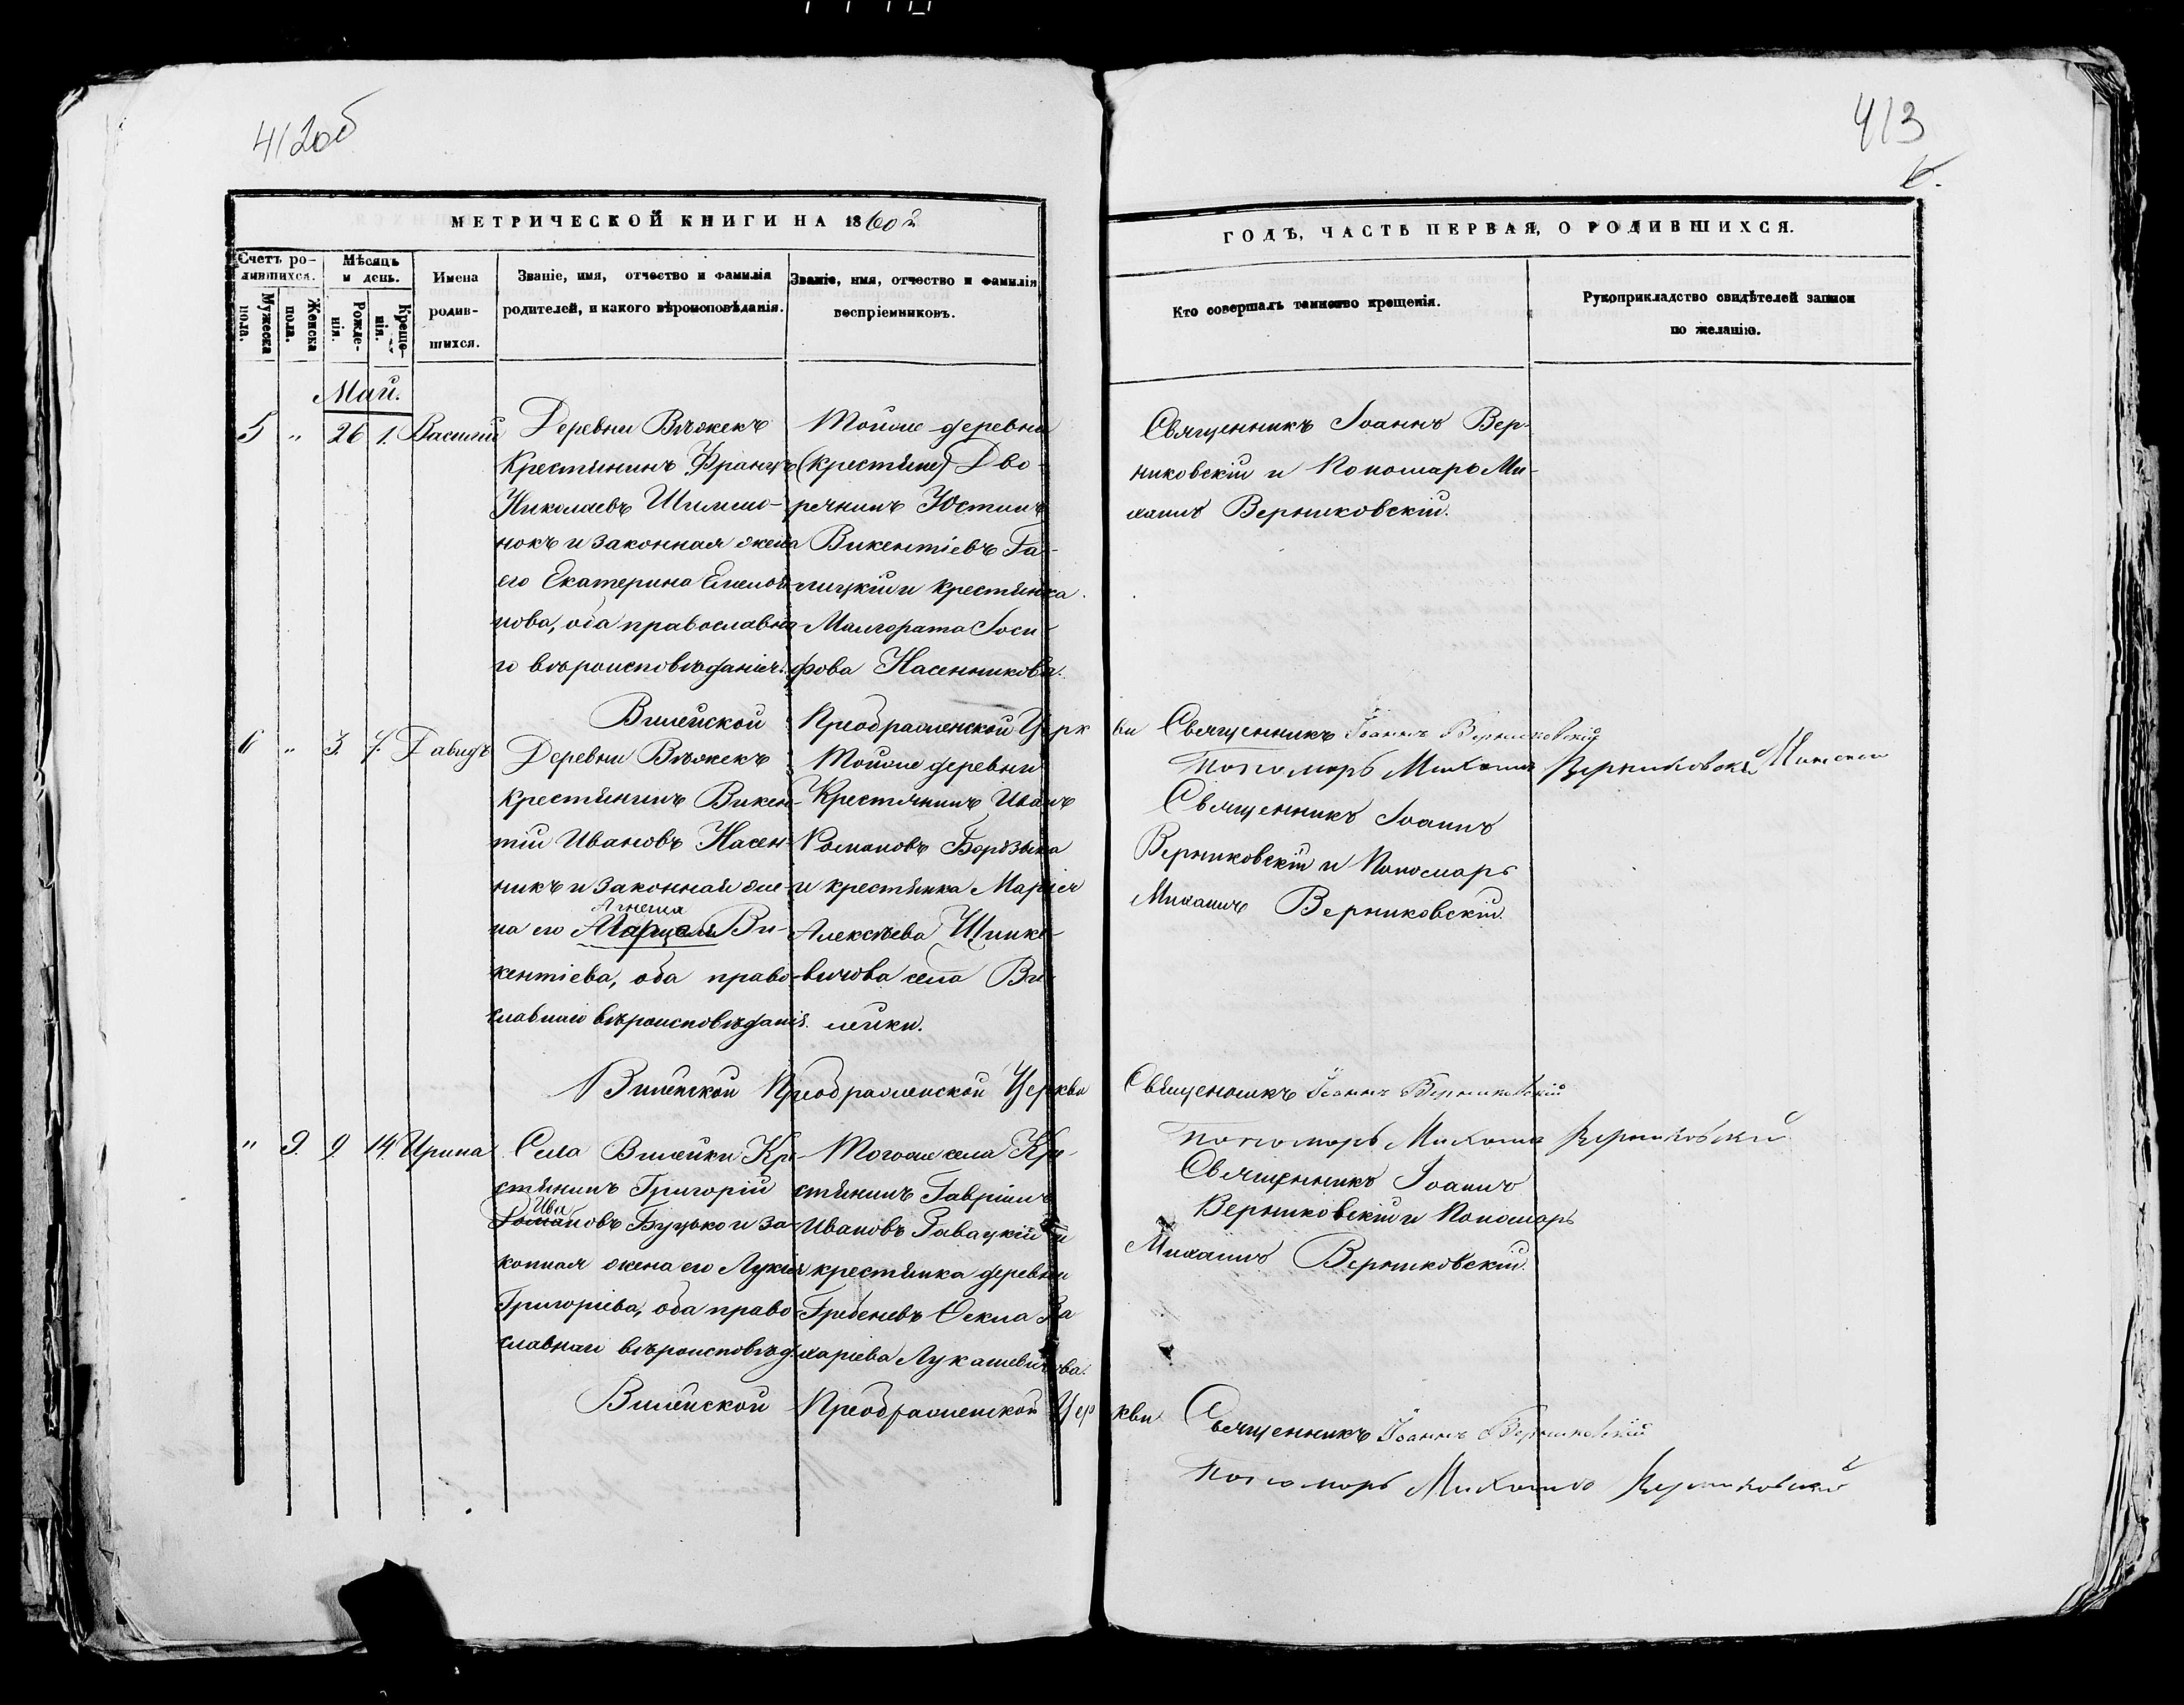 412об
413
6.
МЕТРИЧЕСКОЙ КНИГИ НА 1860й
ГОДЪ, ЧАСТЬ ПЕРВАЯ, О РОДИВШИХСЯ.
Счетъ ро-
дившихся.
Мужеска
пола.
Женска
пола.
Мѣсяцъ
и день.
Рожде-
нія.
Креще-
нія.
Имена
родив-
шихся.
Званіе, имя, отчество и фамилія
родителей, и какого вѣроисповѣданія.
Званіе, имя, отчество и фамилія
воспріемниковъ.
Кто совершалъ таинство крещенія.
Рукоприкладство свидѣтелей записи
по желанію.
Май.
5 " 26 1. Василій
Деревни Вѣжекъ
Крестьянинъ Францъ
Николаевъ Шимено-
нокъ и законная жена
его Екатерина
нова, оба православна-
го вѣроисповѣданія.
Тойже деревни
(крестьяне) Дво-
речнинъ Юстинъ
Викентіевъ Га-
лицкій и крестьянка
Малгората Іоси-
фова Насенникова.
Священникъ Іоаннъ Вер-
никовскій и Пономарь Ми-
хаилъ Верниковскій.
Вилейской Преображенской Церкви Священникъ Іоаннъ Верниковскій
Пономарь Михаилъ Верниковскій
6 " 3. 7. Давидъ
Деревни Вѣжекъ
крестьянинъ Викен-
тій Ивановъ Насен-
никъ и законная же-
Агнеша
на его Марцеля Ви-
кентіева, оба право-
славнаго вѣроисповѣданія.
Тойже деревни
Крестьянинъ Иванъ
Романовъ Борозына
и крестьянка Марія
Алексѣева Шинке-
вичова села Ви-
лейки.
Священникъ Іоаннъ
Верниковскій и Пономарь
Михаилъ Верниковскій.
Вилейской Преображенской Церкви Священникъ Іоаннъ Верниковскій
Пономарь Михаилъ Верниковскій
" 9. 9 14. Ирина
Села Вилейки Кре-
стьянинъ Григорій
Ива
Романовъ Буцько и за-
конная жена его Лукія
Григоріева, оба право-
славнаго вѣроисповѣд.
Тогоже села Кре-
стьянинъ Гавріилъ
Ивановъ Равацкій и
крестьянка деревни
Гребеневъ Фекла За-
харіева Лукашевичова.
Священникъ Іоаннъ
Верниковскій и Пономарь
Михаилъ Верниковскій.
Вилейской Преображенской Церкви Священникъ Іоаннъ Верниковскій
Пономарь Михаилъ Верниковскій